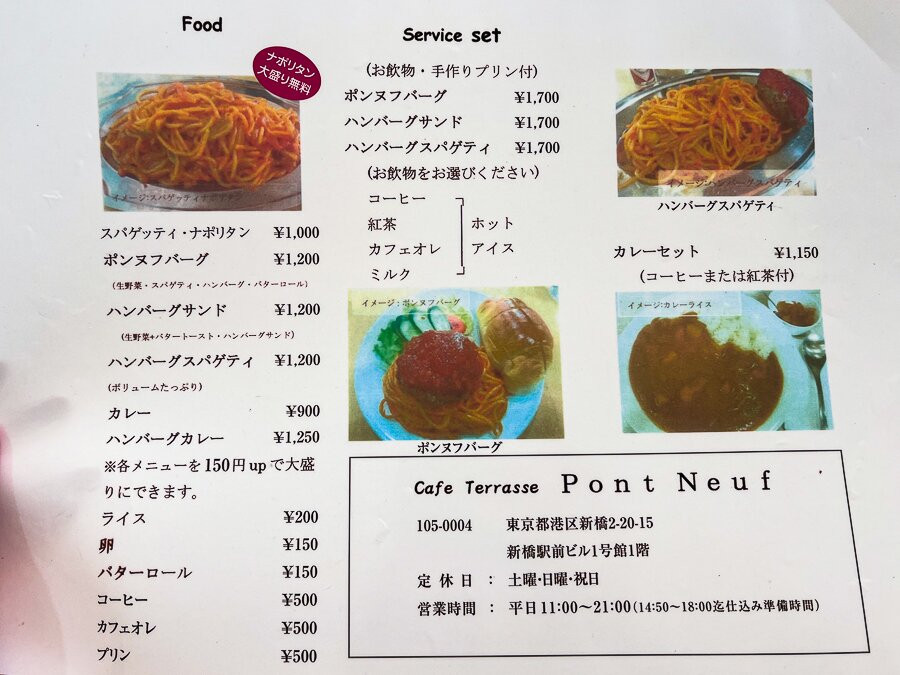 Food
ナポリタン
大盛り無料
イメージ:スパゲッティナポリタン
スパゲッティ・ナポリタン ¥1,000
ポンヌフバーグ ¥1,200
(生野菜・スパゲティ・ハンバーグ・バターロール)
ハンバーグサンド ¥1,200
(生野菜+バタートースト・ハンバーグサンド)
ハンバーグスパゲティ ¥1,200
(ボリュームたっぷり)
カレー ¥900
ハンバーグカレー ¥1,250
※各メニューを150円upで大盛
りにできます。
ライス ¥200
卵 ¥150
バターロール ¥150
コーヒー ¥500
カフェオレ ¥500
プリン ¥500
Service set
(お飲物・手作りプリン付)
ポンヌフバーグ ¥1,700
ハンバーグサンド ¥1,700
ハンバーグスパゲティ ¥1,700
(お飲物をお選びください)
コーヒー
紅茶 ホット
カフェオレ アイス
ミルク
イメージ:ポンヌフバーグ
ポンヌフバーグ
イメージ:ハンバーグスパゲティ
ハンバーグスパゲティ
カレーセット ¥1,150
(コーヒーまたは紅茶付)
イメージ:カレーライス
Cafe Terrasse Pont Neuf
105-0004 東京都港区新橋2-20-15
新橋駅前ビル1号館1階
定休日 : 土曜・日曜・祝日
営業時間 : 平日11:00~21:00(14:50~18:00迄仕込み準備時間)